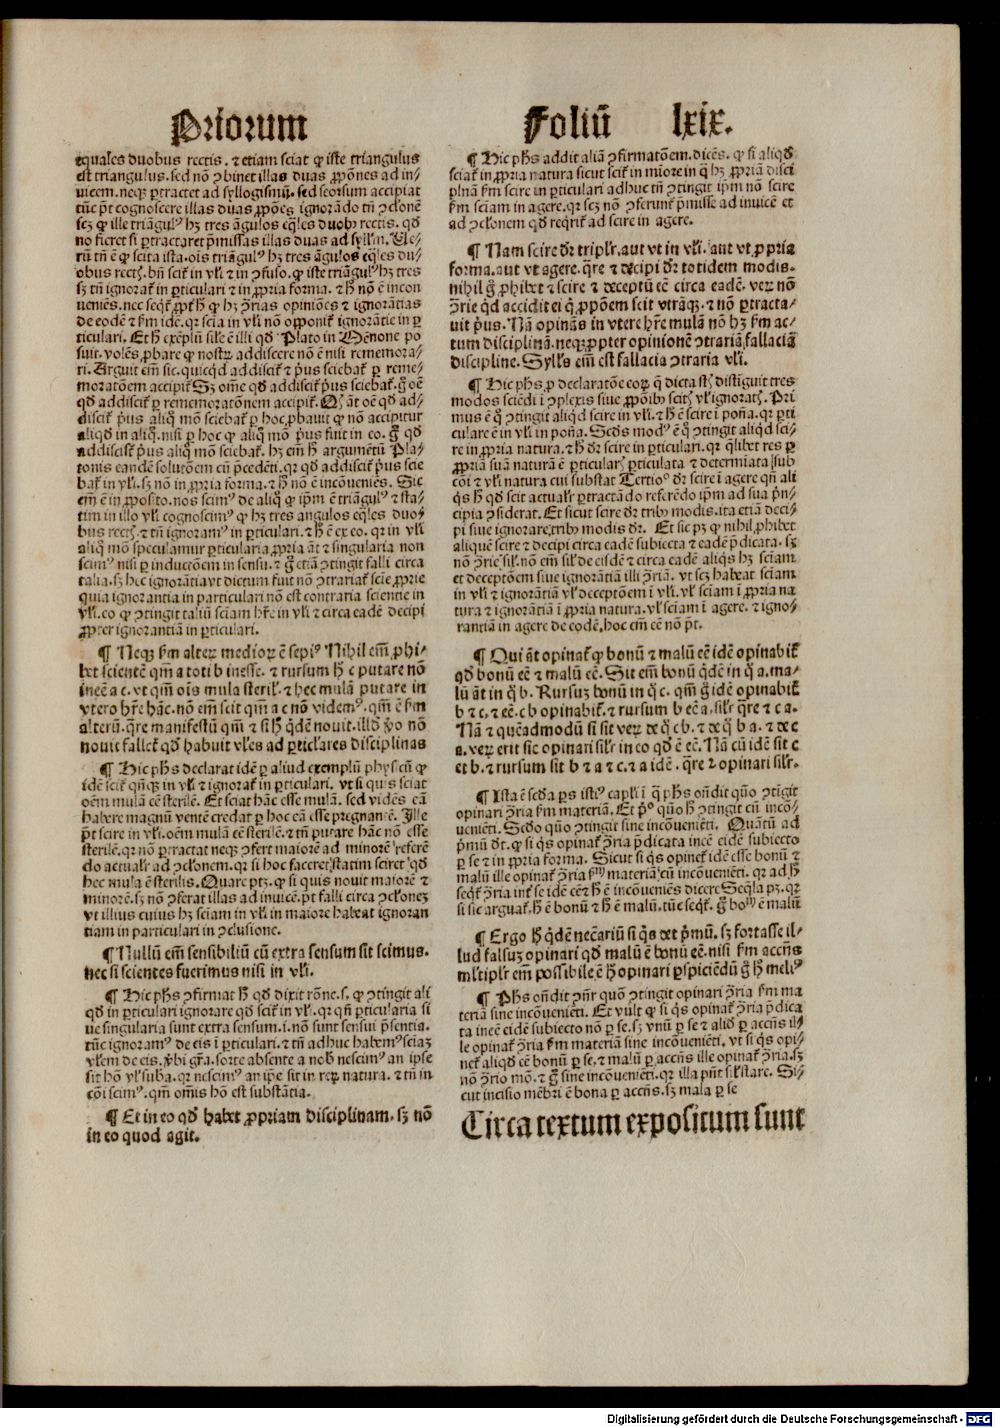 Priorum
equales duobus rectis. ⁊ etiam sciat ꝙ iste triangulus
est triangulus. sed nõ ꝯbinet illas duas ꝓpõnes ad in/
uicem. neqꝫ ꝑtractet ad syllogismũ. sed seorsum accipiat
tũc p̃t cognoscere illas duas ꝓpões ignorãdo tñ ꝯclonẽ
scꝫ ꝙ ille triãgulꝰ hꝫ tres ãgulos eq̃les duobꝰ rectis. qď
no fieret si ꝑtractaret p̃missas illas duas ad syllm̃. Ue/
rũ tñ ẽ ꝙ scita ista. ois triãgulꝰ hꝫ tres ãgulos eq̃les du/
obus rectꝭ. bñ scit᷑ in vłi ⁊ in ꝯfuso. ꝙ iste triãgulꝰ hꝫ tres
sꝫ tñ ignorat᷑ in ꝑticulari ⁊ in ꝓpria forma. ⁊ ħ nõ ẽ incon
ueniẽs. nec seq̃t᷑ ꝓpt̃ ħ ꝙ hꝫ ꝯ̃rias opiniões ⁊ ignorãtias
de eodẽ ⁊ ẜm idẽ. qꝛ scĩa in vłi nõ opponit᷑ ignorãtie in ꝑ
ticulari. Et ħ exẽplũ siłe ẽ illi qď Plato in Mẽnone po
suit. volẽs ꝓbare ꝙ nostꝝ addiscere nõ ẽ nisi rememora/
ri. Arguit em̃ sic. quicq̃d addiscit᷑ p̃us sciebat᷑ ꝑ reme/
moratõem accipit᷑. Sꝫ om̃e qď addiscit᷑ p̃us sciebat᷑. g̃ oẽ
qď addiscit᷑ ꝑ rememoratõnem accipit᷑. Qꝫ ãt oẽ qď ad/
discit᷑ p̃us aliq̃ mõ sciebat᷑ ꝑ hoc ꝓbauit ꝙ nõ accipitur
aliqď in aliq̃. nisi ꝑ hoc ꝙ aliq̃ mõ p̃us fuit in eo. g̃ qď
addiscit᷑ p̃us aliq̃ mõ sciebat᷑. hꝫ em̃ ħ argumẽtũ Pla/
tonis eandẽ solutõem cũ p̃cedẽti. qꝛ qď addiscit᷑ p̃us scie
bat᷑ in vłi. sꝫ nõ in ꝓpria forma. ⁊ ħ nõ ẽ incõueniẽs. Sic
em̃ ẽ in ꝓposito. nos scimꝰ de aliq̃ ꝙ ip̃m ẽ triãgulꝰ ⁊ sta/
tim in illo vłi cognoscimꝰ ꝙ hꝫ tres angulos eq̃les duo/
bus rectꝭ. ⁊ tñ ignoramꝰ in ꝑticulari. ⁊ ħ ẽ ex eo. qꝛ in vłi
aliq̃ mõ speculamur ꝑticularia ꝓpria ãt ⁊ singularia non
scimꝰ nisi ꝑ inductõem in sensu. ⁊ g̃ etiã ꝯtingit falli circa
talia. sꝫ hec ignorãtia vt dictum fuit nõ ꝯtrariat᷑ scĩe ꝓprie
quia ignorantia in particulari nõ est contraria scientie in
vłi. eo ꝙ ꝯtingit taliũ scĩam hr̃e in vłi ⁊ circa eadẽ decipi
ꝓpter ignorantiã in ꝑticulari.
¶ Neqꝫ ẜm alteꝝ medioꝝ ẽ sepiꝰ Nihil em̃ ꝓhi/
bet scientẽ qm̃ a toti b inesse. ⁊ rursum ħ c putare nõ
inẽe a c. vt qm̃ ois mula sterił. ⁊ hec mulã putare in
vtero hr̃e hãc. nõ em̃ scit qm̃ a c nõ videmꝰ. qm̃ ẽ ẜm
alterũ. q̃re manifestũ qm̃ ⁊ si ħ q̃dẽ nouit. illď ꝟo nõ
nouit fallet᷑ qď habuit vłes ad ꝑticłares disciplinas
¶ Hic ph̃s declarat idẽ ꝑ aliud exemplũ physicũ ꝙ
idẽ scit᷑ qñqꝫ in vłi ⁊ ignorat᷑ in ꝑticulari. vt si quis sciat
oẽm mulã eẽ sterilẽ. Et sciat hãc esse mulã. sed vidẽs eã
habere magnũ ventrẽ credat ꝑ hoc eã esse pregnantẽ. Ille
p̃t scire in vłi. oẽm mulã eẽ sterilẽ. ⁊ tñ putare hãc nõ esse
sterilẽ. qꝛ non ꝑtractat neqꝫ ꝯfert maiorẽ ad minorẽ referẽ
do actualr̃ ad ꝯclonem. qꝛ si hoc faceret statim sciret qď
hec mula ẽ sterilis. Quare ptꝫ. ꝙ si quis nouit maiorẽ ⁊
minorẽ. sꝫ nõ ꝯferat illas ad inuicẽ. p̃t falli circa ꝯclonẽꝫ
vt illius cuius hꝫ scĩam in vłi in maiore habeat ignoran
tiam in particulari in ꝯclusione.
¶ Nullũ em̃ sensibiliũ cũ extra sensum sit scimus.
nec si scientes fuerimus nisi in vłi.
¶ Hic ph̃s ꝯfirmat ħ qď dixit rõne. s. ꝙ ꝯtingit ali
qď in ꝑticulari ignorare qď scit᷑ in vłi. qꝛ qñ ꝑticularia si
ue singularia sunt extra sensum. i. nõ sunt sensui p̃sentia.
tũc ignoramꝰ de eis ĩ ꝑticulari. ⁊ tñ adhuc habemꝰ sciaꝫ
vłem de eis. ꝟbi gr̃a. sorte absente a nobꝭ nescimꝰ an ipse
sit hõ vł suba. qꝛ nescimꝰ an ip̃e sit in reꝝ natura. ⁊ tñ in
cõi scimꝰ. qm̃ om̃is hõ est substãtia.
¶ Et in eo qď habet ꝓpriam disciplinam. sꝫ nõ
in eo quod agit.
Foliũ lxix.
¶ Hic ph̃s addit aliã ꝯfirmatõem. dicẽs. ꝙ si aliq̃d
sciat᷑ in ꝓpria natura sicut scit᷑ in miore in q̃ hꝫ ꝓpriã disci
plinã ẜm scire in ꝑticulari adhuc tñ ꝯtingit ip̃m nõ scire
ẜm sciam in agere. qꝛ scꝫ non ꝯferunt᷑ p̃misse ad inuicẽ et
ad ꝯclonem qď requirit᷑ ad scire in agere.
¶ Nam scire dr̃ triplr̃. aut vt in vłi. aut vt ꝓpria
forma. aut vt agere. q̃re ⁊ decipi dr̃ totidem modis.
nihil g̃ ꝓhibet ⁊ scire ⁊ deceptũ eẽ circa eadẽ. veꝝ nõ
ꝯ̃rie q̃d accidit ei q̃ ꝓpõem scit vtrãqꝫ. ⁊ nõ ꝑtracta/
uit p̃us. Nã opinãs in vtere hr̃e mulã nõ hꝫ ẜm ac/
tum disciplinã. neqꝫ ꝓpter opinionẽ ꝯtrariã fallaciã
discipline. Sylłs em̃ est fallacia ꝯtraria vłi.
¶ Hic ph̃s ꝓ declaratõe eoꝝ q̃ dicta st̃ distiguit tres
modos sciẽdi ĩ ꝯplexis siue ꝓpõibꝰ scitꝭ vł ignoratꝭ. Pri
mus ẽ q̃ ꝯtingit aliq̃d scire in vłi. ⁊ ħ ẽ scire ĩ poñа. qꝛ ꝑti
culare ẽ in vłi in poña. Scďs modꝰ ẽ q̃ ꝯtingit aliq̃d sci/
re in ꝓpria natura. ⁊ ħ dr̃ scire in ꝑticulari. qꝛ qlibet res ꝑ
ꝓpriã suã naturã ẽ ꝑticularꝭ ꝑticulata ⁊ determiata sub
cõi ⁊ vłi natura cui substat Tertioꝰ dr̃ scire ĩ agere qñ ali
q̃s ħ qď scit actualr̃ ꝑtractãdo referẽdo ip̃m ad sua p̃n/
cipia ꝯsiderat. Et sicut scire dr̃ tribꝰ modis. ita etiã deci/
pi siue ignorare, tribꝰ modis dr̃. Et sic pꝫ ꝙ nihil ꝓhibet
aliquẽ scire ⁊ decipi circa eadẽ subiecta ⁊ eadẽ p̃dicata. sꝫ
nõ ꝯ̃rie sił. nõ em̃ sił de eisdẽ ⁊ circa eadẽ aliq̃s hꝫ scĩam
et deceptõem siue ignorãtiã illi ꝯ̃riã. vt scꝫ habeat scĩam
in vłi ⁊ ignorãtiã vł deceptõem ĩ vłi. vł sciam ĩ ꝓpria na
tura ⁊ ignorãtiã ĩ ꝓpria natura. vł sciam ĩ agere. ⁊ igno/
rantiã in agere de eodẽ. hoc em̃ eẽ nõ p̃t.
¶ Qui ãt opinat᷑ ꝙ bonũ ⁊ malũ eẽ idẽ opinabit᷑
qď bonũ eẽ ⁊ malũ eẽ. Sit em̃ bonũ q̃dẽ in q̃ a. ma/
lũ ãt in q̃ b. Rursuꝫ bonũ in q̃ c. qm̃ g̃ idẽ opinabit᷑
b ⁊ c, ⁊ eẽ. c b opinabit᷑. ⁊ rursum b eẽ a. siłr q̃re ⁊ c a.
Nã ⁊ quẽadmodũ si sit veꝝ de q̃ c b. ⁊ de q̃ b a. ⁊ de c
a. veꝝ erit sic opinari siłr in eo qď ẽ eẽ. Nã cũ idẽ sit c
et b. ⁊ rursum sit b ⁊ a ⁊ c. ⁊ a idẽ. q̃re ⁊ opinari siłr.
¶ Ista ẽ scďa ꝑs istꝰ capłi ĩ q̃ ph̃s oñdit quõ ꝯtigit
opinari ꝯ̃ria ẜm materiã. Et p̃ᵒ quõ ħ ꝯtingit cũ incõ/
ueniẽti. Scďo quõ ꝯtingit sine incõueniẽti. Quãtũ ad
p̃mũ dt̃. ꝙ si q̃s opinat᷑ ꝯ̃ria p̃dicata inẽe eidẽ subiecto
ꝑ se ⁊ in ꝓpria forma. Sicut si q̃s opinet᷑ idẽ esse bonũ ⁊
malũ ille opinat᷑ ꝯ̃ria ẜm materiã cũ incõueniẽti. qꝛ ad ħ
seqt᷑ ꝯ̃ria int᷑ se idẽ eẽ ⁊ ħ ẽ incõueniẽs dicere Seq̃la pꝫ. qꝛ
si sic arguat᷑. ħ ẽ bonũ ⁊ ħ ẽ malũ. tũc seqt᷑. g̃ bonũ ẽ malũ
¶ Ergo ħ q̃dẽ necẽariũ si q̃s det p̃mũ. sꝫ fortasse il/
lud falsuꝫ opinari qď malũ ẽ bonũ eẽ. nisi ẜm accñs
młtiplr̃ em̃ possibile ẽ ħ opinari ꝑspiciẽdũ g̃ ħ meliꝰ
¶ Ph̃s oñdit ꝯñr quõ ꝯtingit opinari ꝯ̃ria ẜm ma
teriã sine incõueniẽti. Et vult ꝙ si q̃s opinat᷑ ꝯ̃ria p̃dica
ta inẽe eidẽ subiecto nõ ꝑ se. sꝫ vnũ ꝑ se ⁊ aliď ꝑ accñs il/
le opinat᷑ ꝯ̃ria ẜm materiã sine incõueniẽti. vt si q̃s opi/
net᷑ aliq̃d eẽ bonũ ꝑ se. ⁊ malũ ꝑ accñs ille opinat᷑ ꝯ̃ria. sꝫ
nõ ꝯ̃rio mõ. ⁊ g̃ sine incõueniẽti. qꝛ illa pñt sił stare. Si/
cut incisio mẽbri ẽ bona ꝑ accñs. sꝫ mala ꝑ se
Circa textum expositum sunt
Digitalisierung gefördert durch die Deutsche Forschungsgemeinschaft - DFG